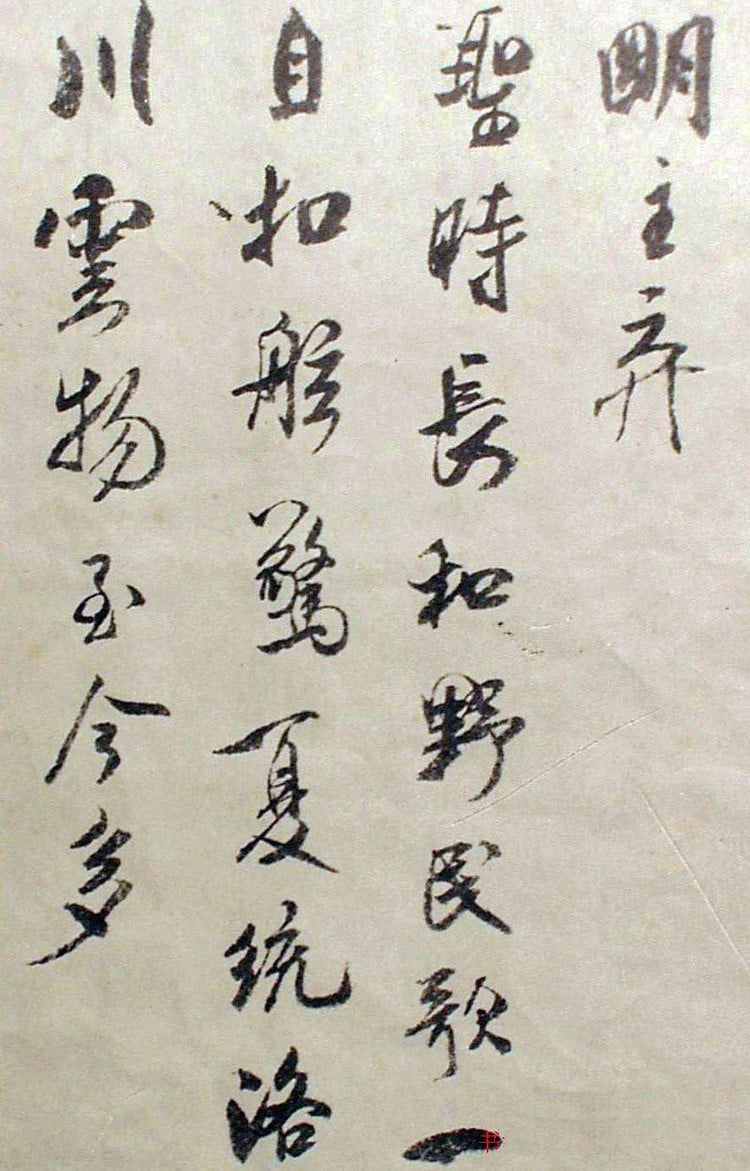 明主弃
聖時長和野民歌一
自扣舷驚夏統洛
川雲物至今多
书